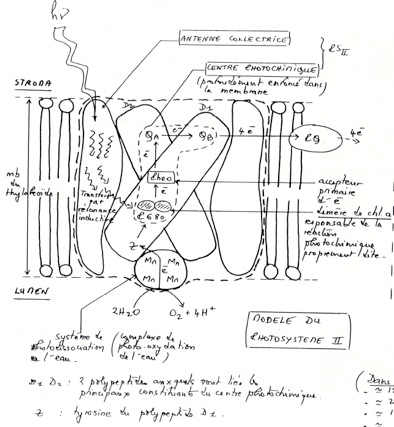 hν
ANTENNE COLLECTRICE
PS II
CENTRE PHOTOCHIMIQUE
(profondément enfoncé dans
la membrane)
STROMA
D2
D1
QA
e-
QB
4e-
PQ
4e-
e-
Pheo
accepteur
primaire
d'e-
mb
du
thylakoïde
Transfert
par
résonance
inductive
e-
P680
dimère de chl a
responsable de la
réaction
photochimique
proprement dite.
Z
e-
Mn
Mn
Mn
Mn
LUMEN
2H2O
O2 + 4H+
MODELE DU
PHOTOSYSTEME II
système de (complexe de
photodissociation photooxydation
de l'eau. de l'eau)
D1 D2 : 2 polypeptides auxquels sont liés les
principaux constituants du centre photochimique.
Z : tyrosine du polypeptide D1.
(Dans